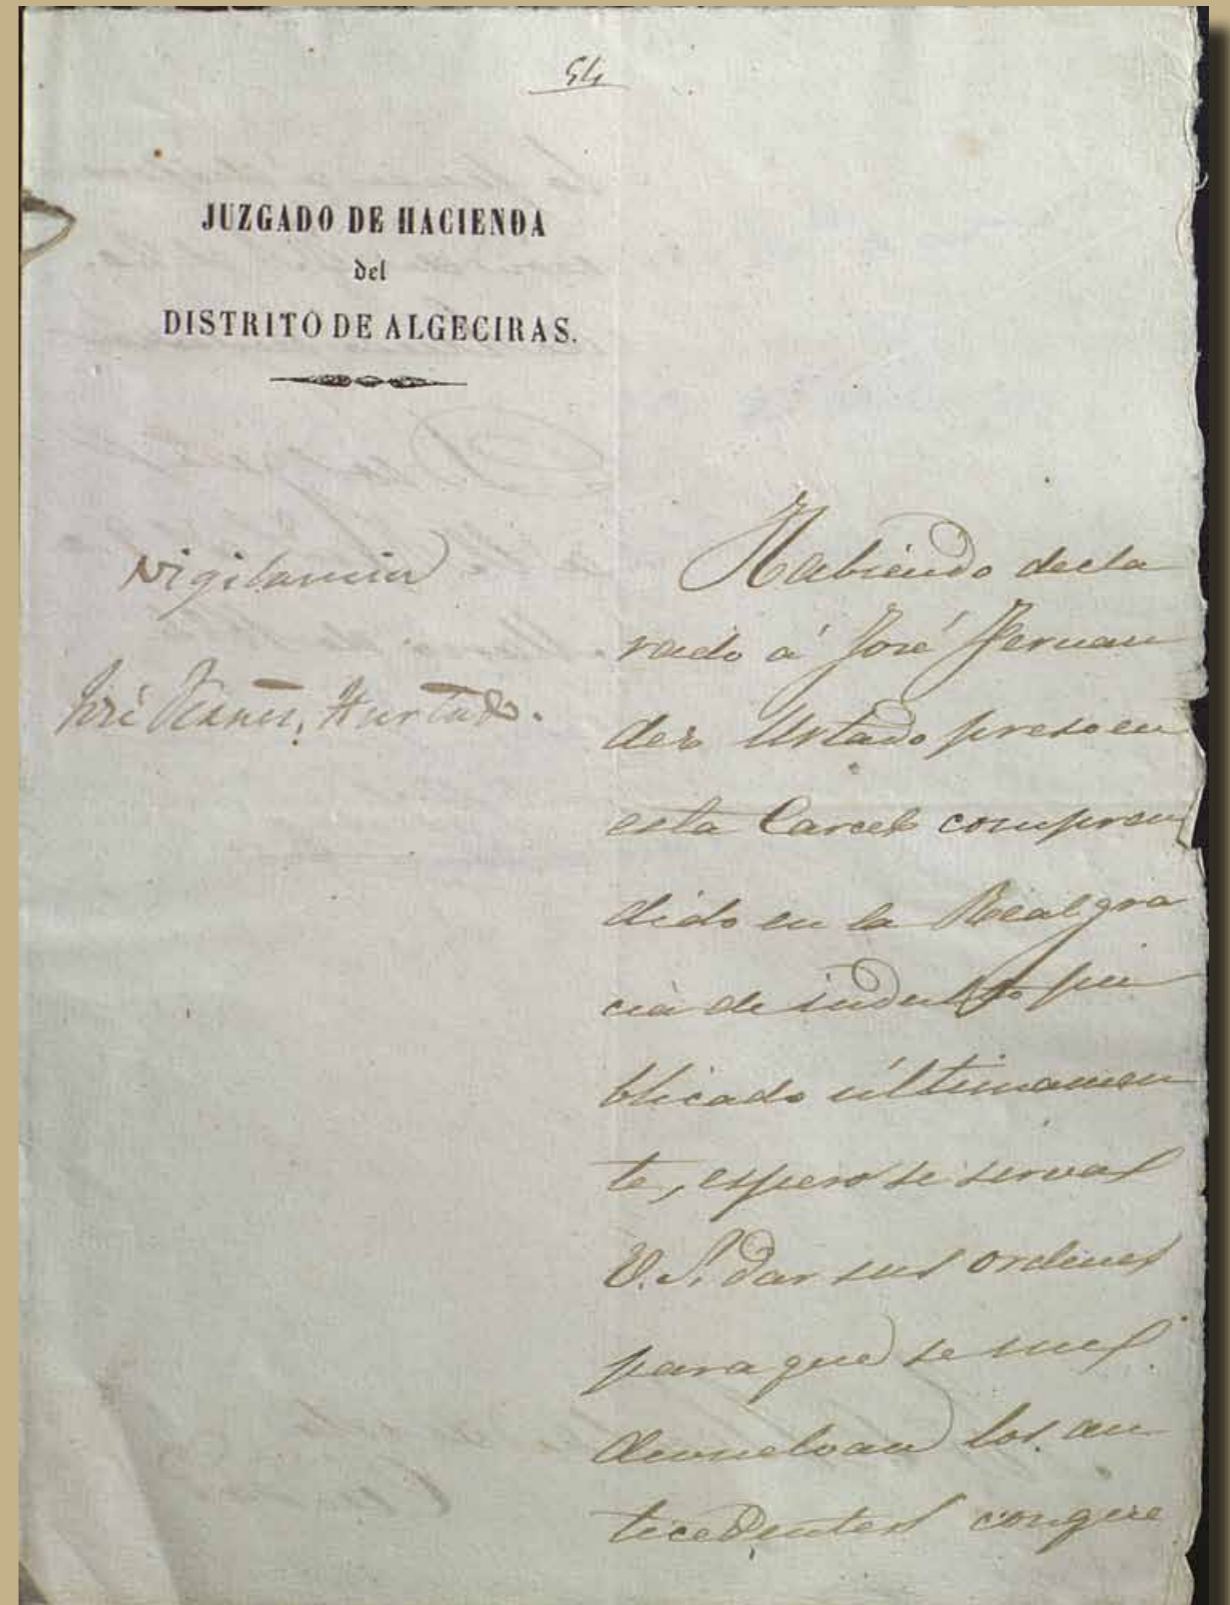 54
JUZGADO DE HACIENDA
del
DISTRITO DE ALGECIRAS.
Vigilancia
José Hurtado.
Habiendo decla
rado á José Fernan
dez Urtado preso en
esta Carcel compren
dido en la Real gra
cia de indulto pu
blicado últimamen
te, espero se serva
V. S. dar sus ordenes
para que se me
devuelvan los an
tecedentes conque